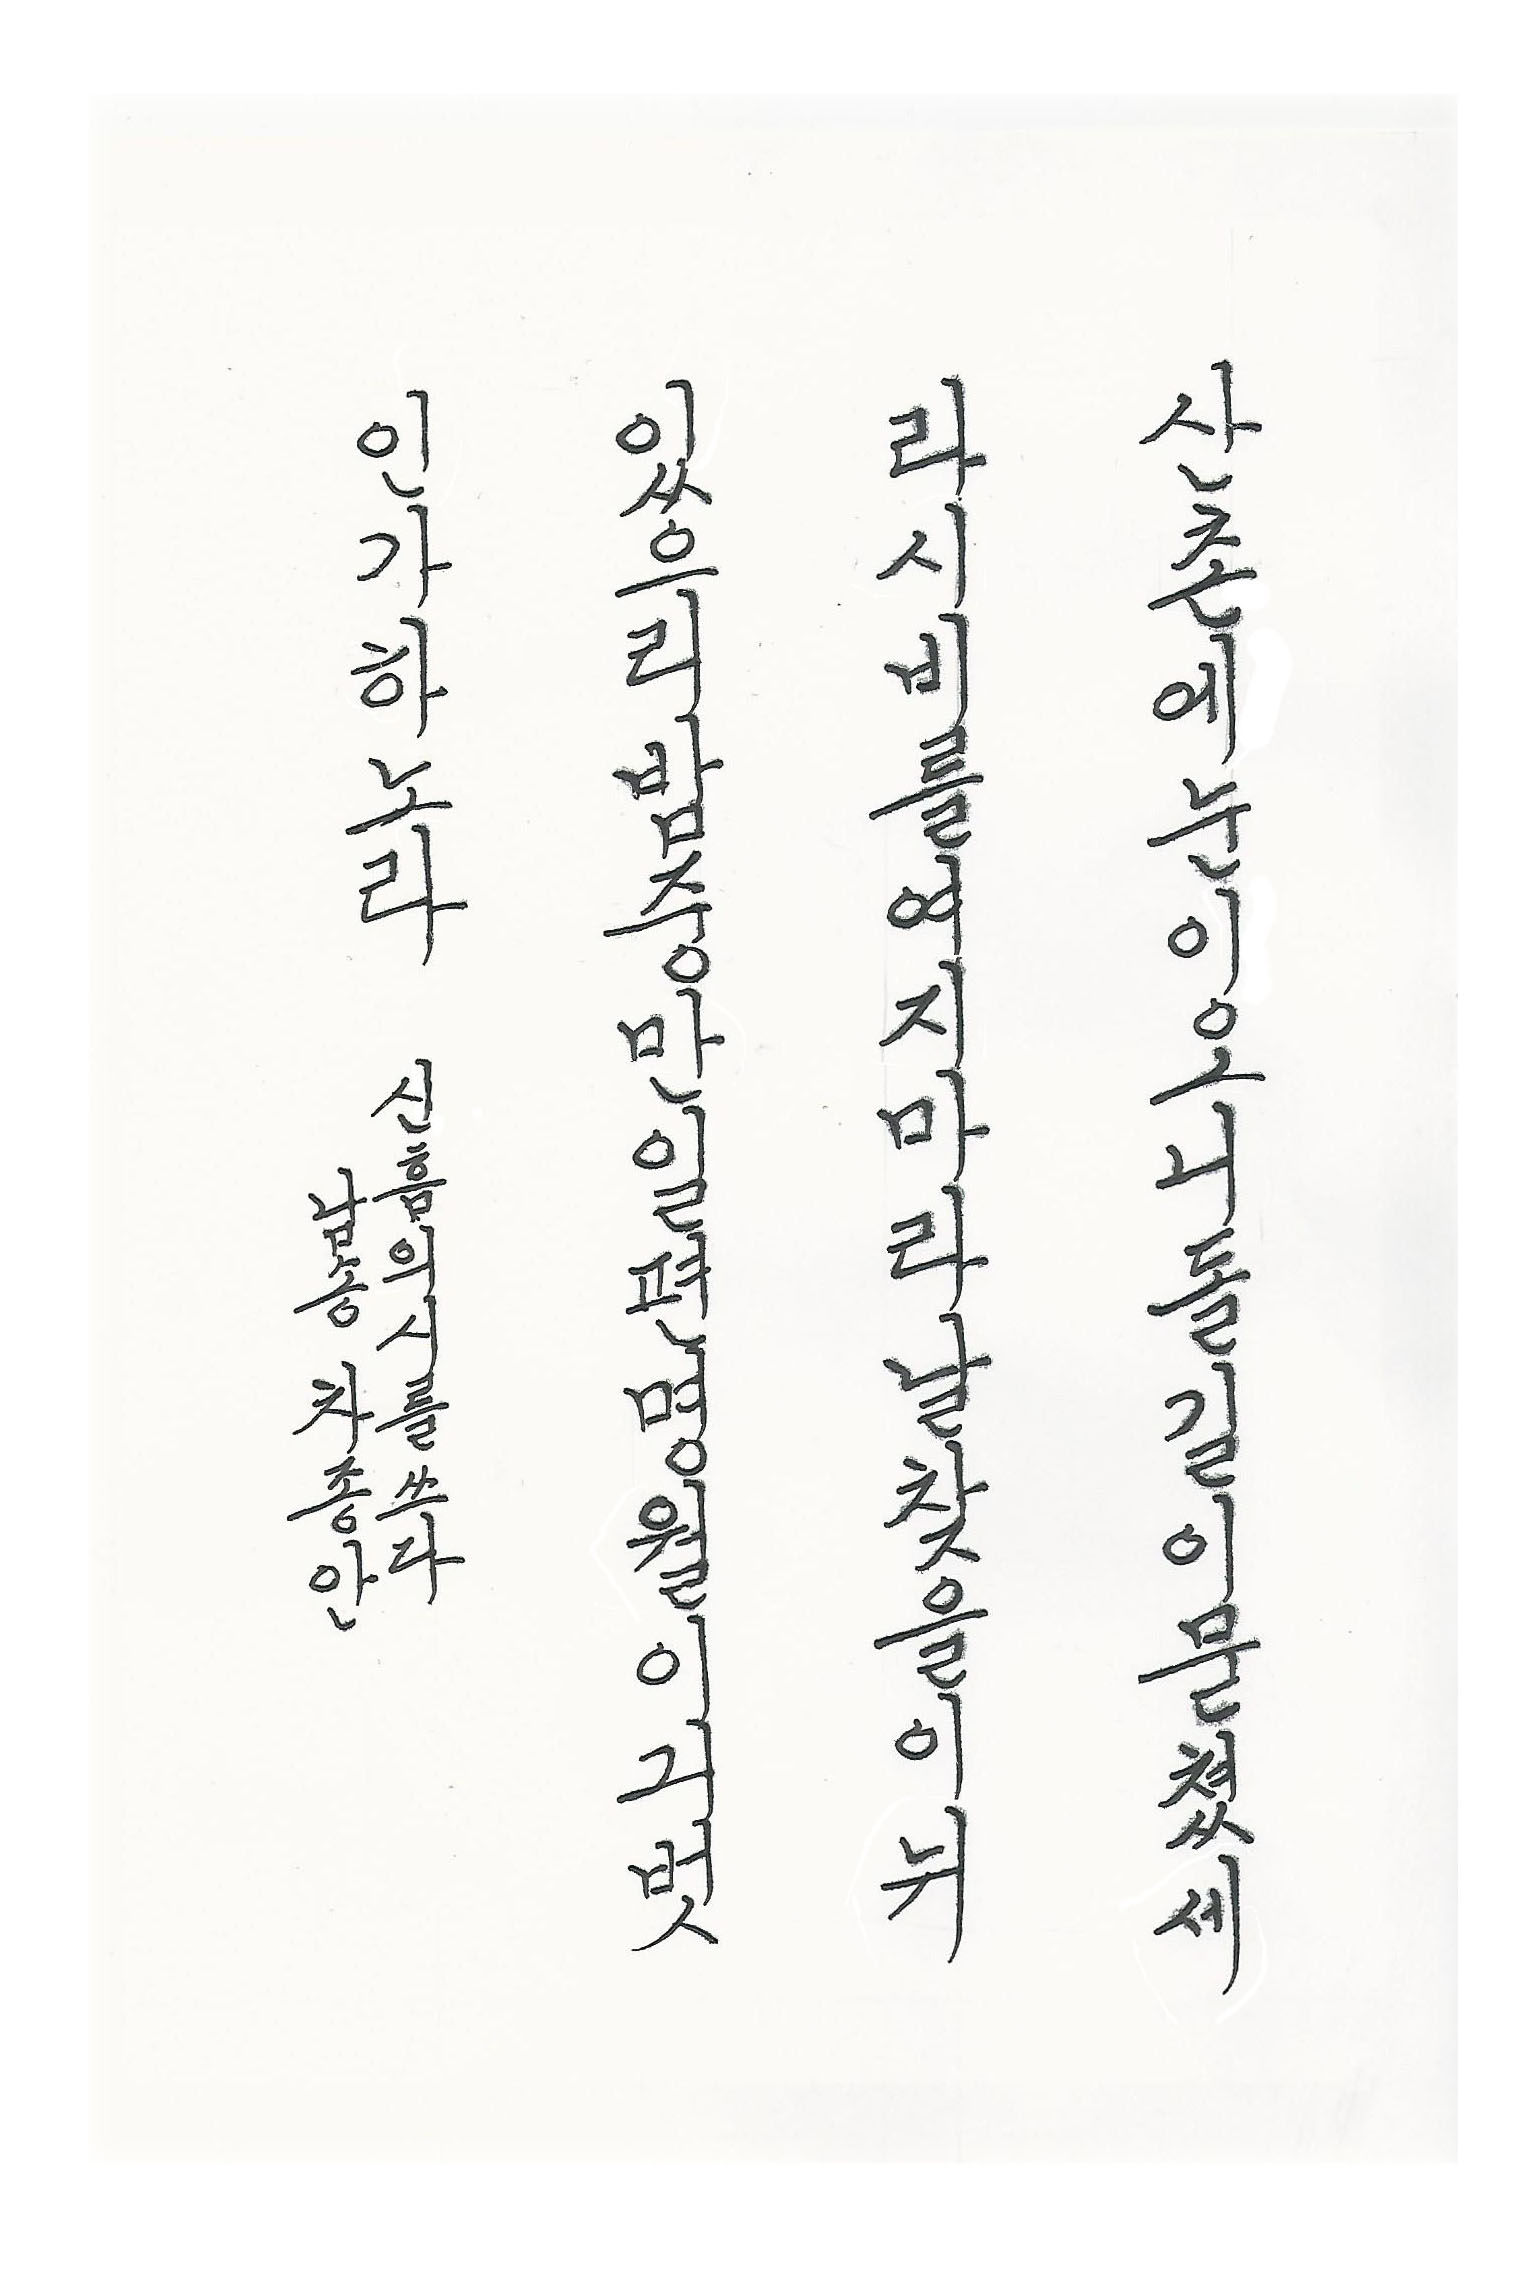 산촌에눈이오니돌길이문쳤세
라시비를여지마라날찾을이뉘
있으리밤중만일편명월이긔벗
인가하노라
신흠의시를쓰다
남송 차종안